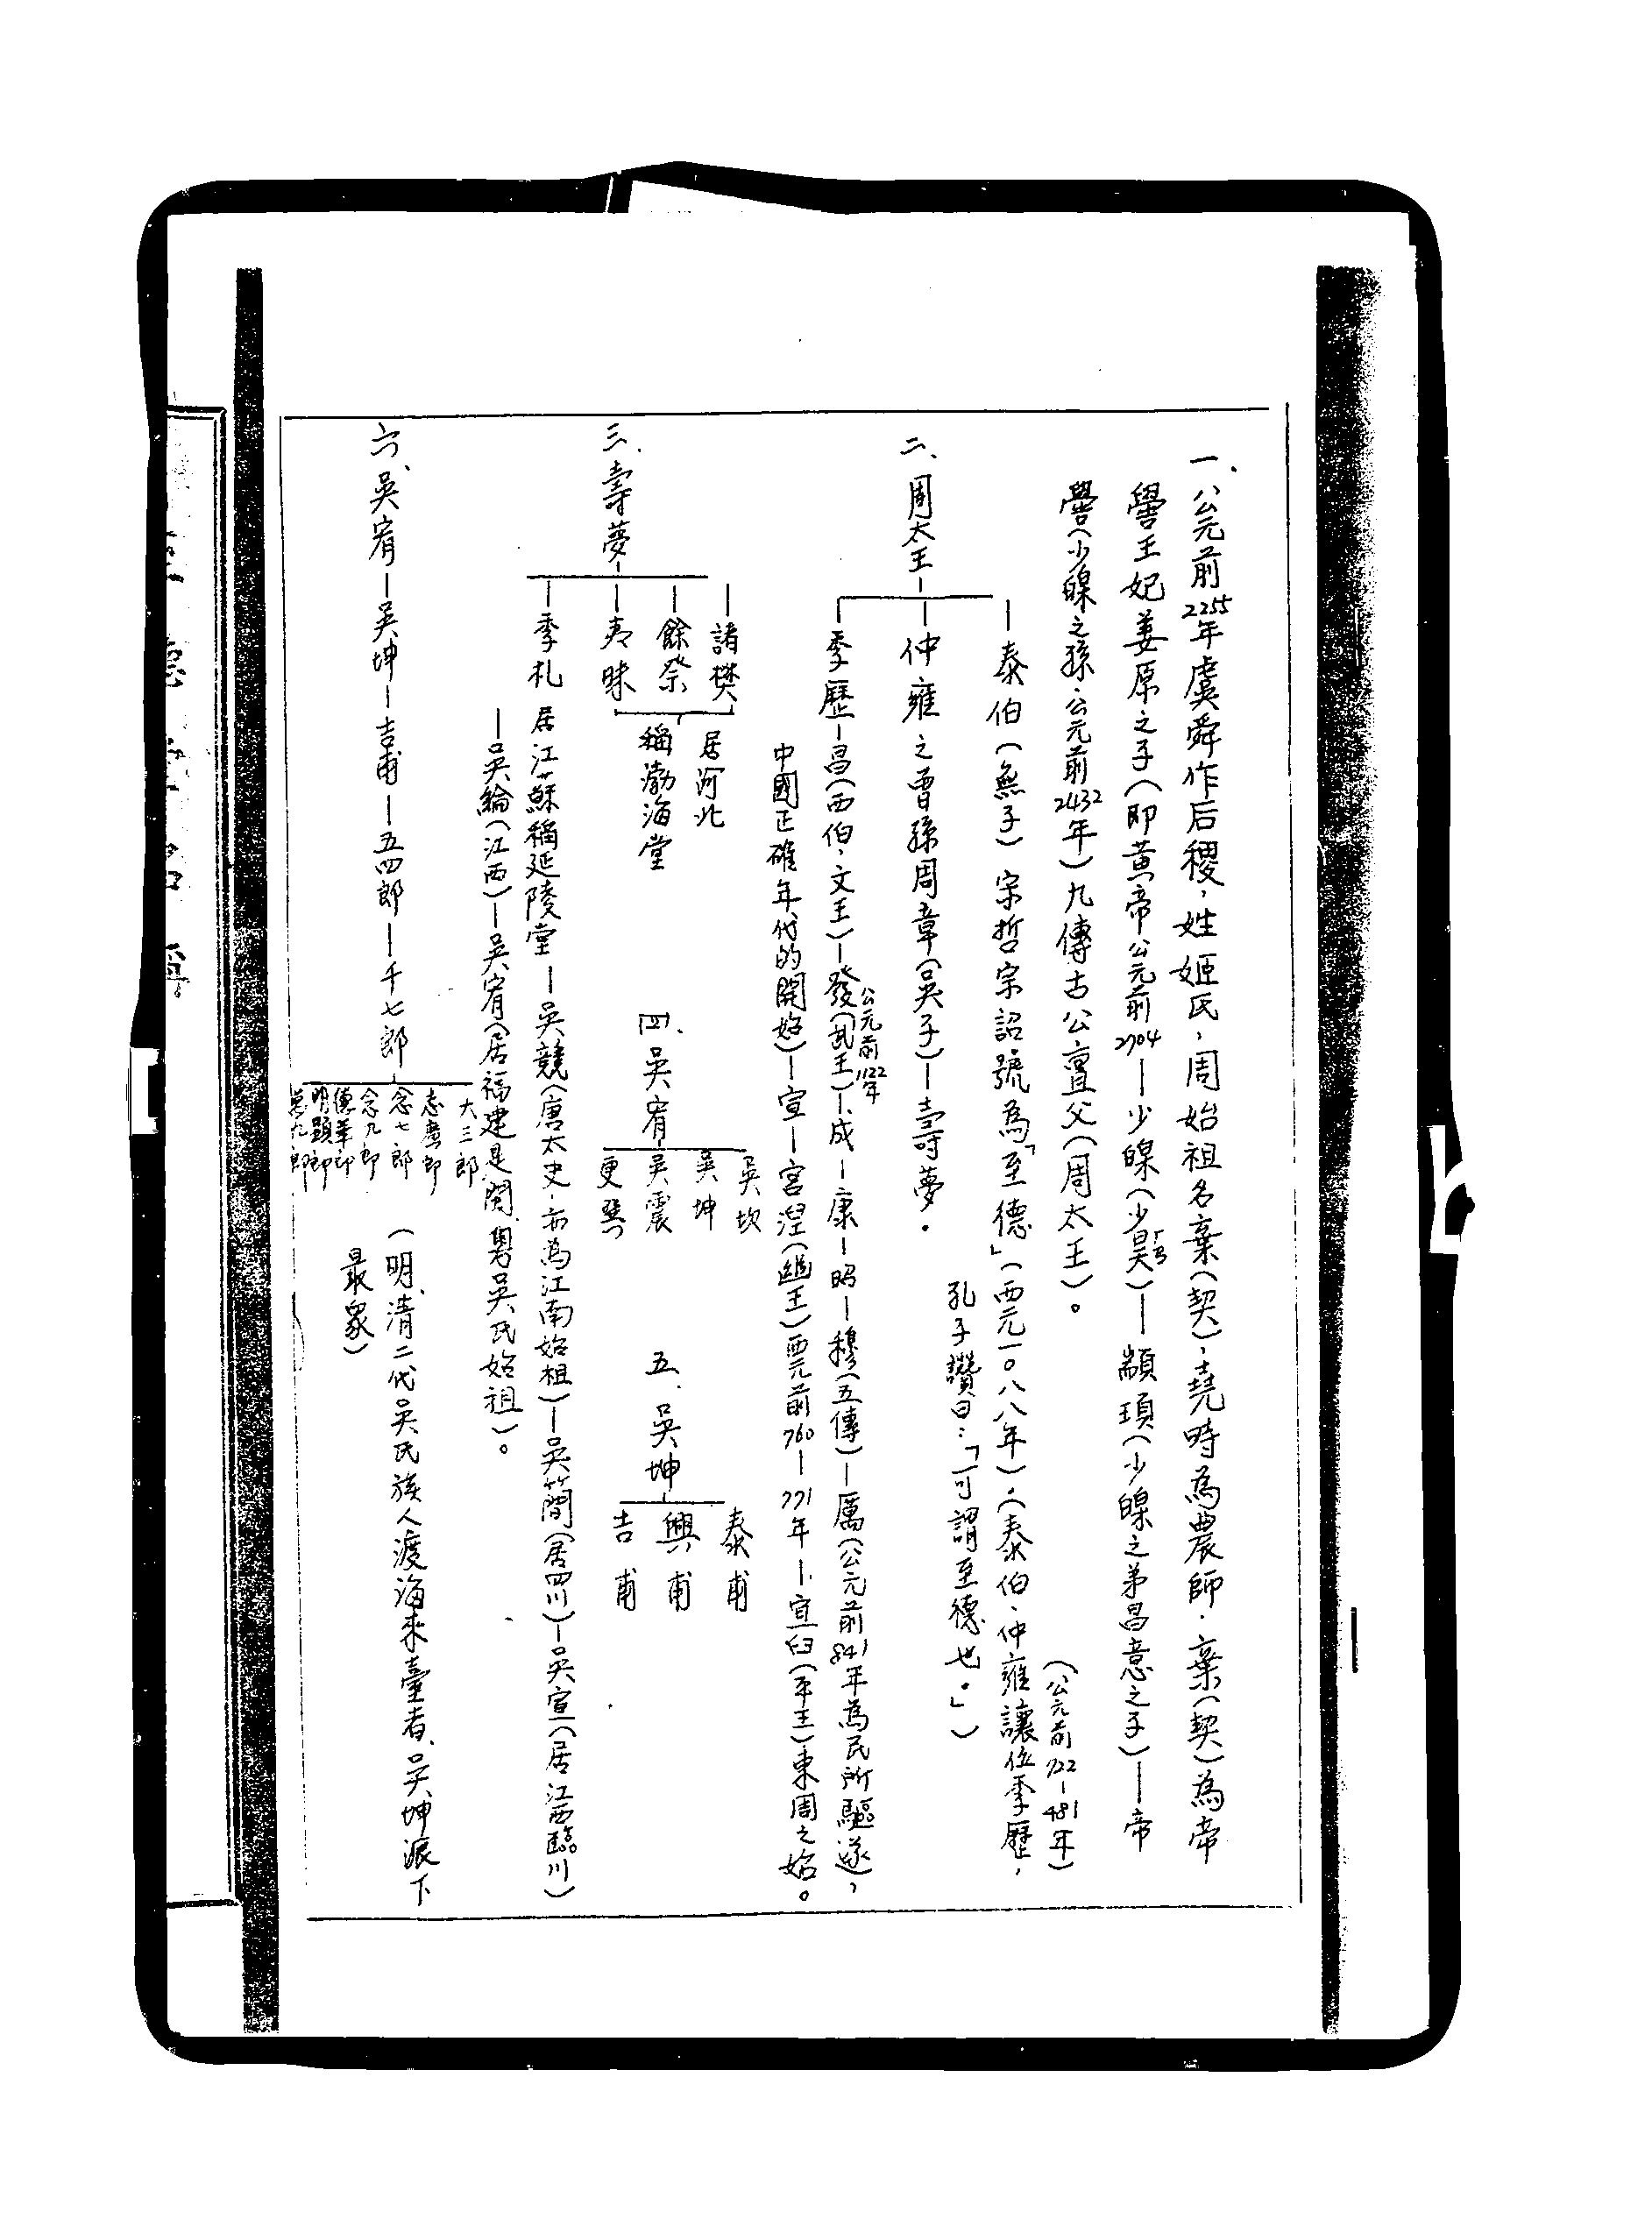 一、公元前2255年虞舜作后稷，姓姬氏，周始祖名棄（契），堯時為農師．棄（契）為帝
嚳王妃姜原之子（即黃帝公元前2704—少皞（少昊）—顓頊（少皞之弟昌意之子）—帝
嚳（少皞之孫．公元前2432年）九傳古公亶父（周太王）。
二、周太王
泰伯（無子）宋哲宗詔號為「至德」（西元一〇八八年）．（泰伯、仲雍讓位季歷，
（公元前722－481年）
孔子讚曰：「可謂至德也。」）
仲雍之曾孫周章（吳子）—壽夢。
季歷—昌（西伯，文王）—發（武王）—成—康—昭—穆（五傳）—厲（公元前841年為民所驅逐），
公元前1122年
中國正確年代的開始）—宣—宮湼（幽王）西元前760—771年—宜臼（平王）東周之始。
三、壽夢
諸樊
餘祭
夷昧
居河北
稱渤海堂
季札
居江蘇稱延陵堂—吳競（唐太史．亦為江南始祖）—吳簡（居四川）—吳宣（居江西臨川）
—吳綸（江西）—吳宥（居福建是閩、粵吳氏始祖）。
四、吳宥
吳坎
吳坤
吳震
更巽
五、吳坤
泰甫
興甫
吉甫
六、吳宥—吳坤—吉甫—五四郎—千七郎
大三郎
念七郎
念九郎
（明、清二代吳氏族人渡海來臺者、吳坤派下
最眾）